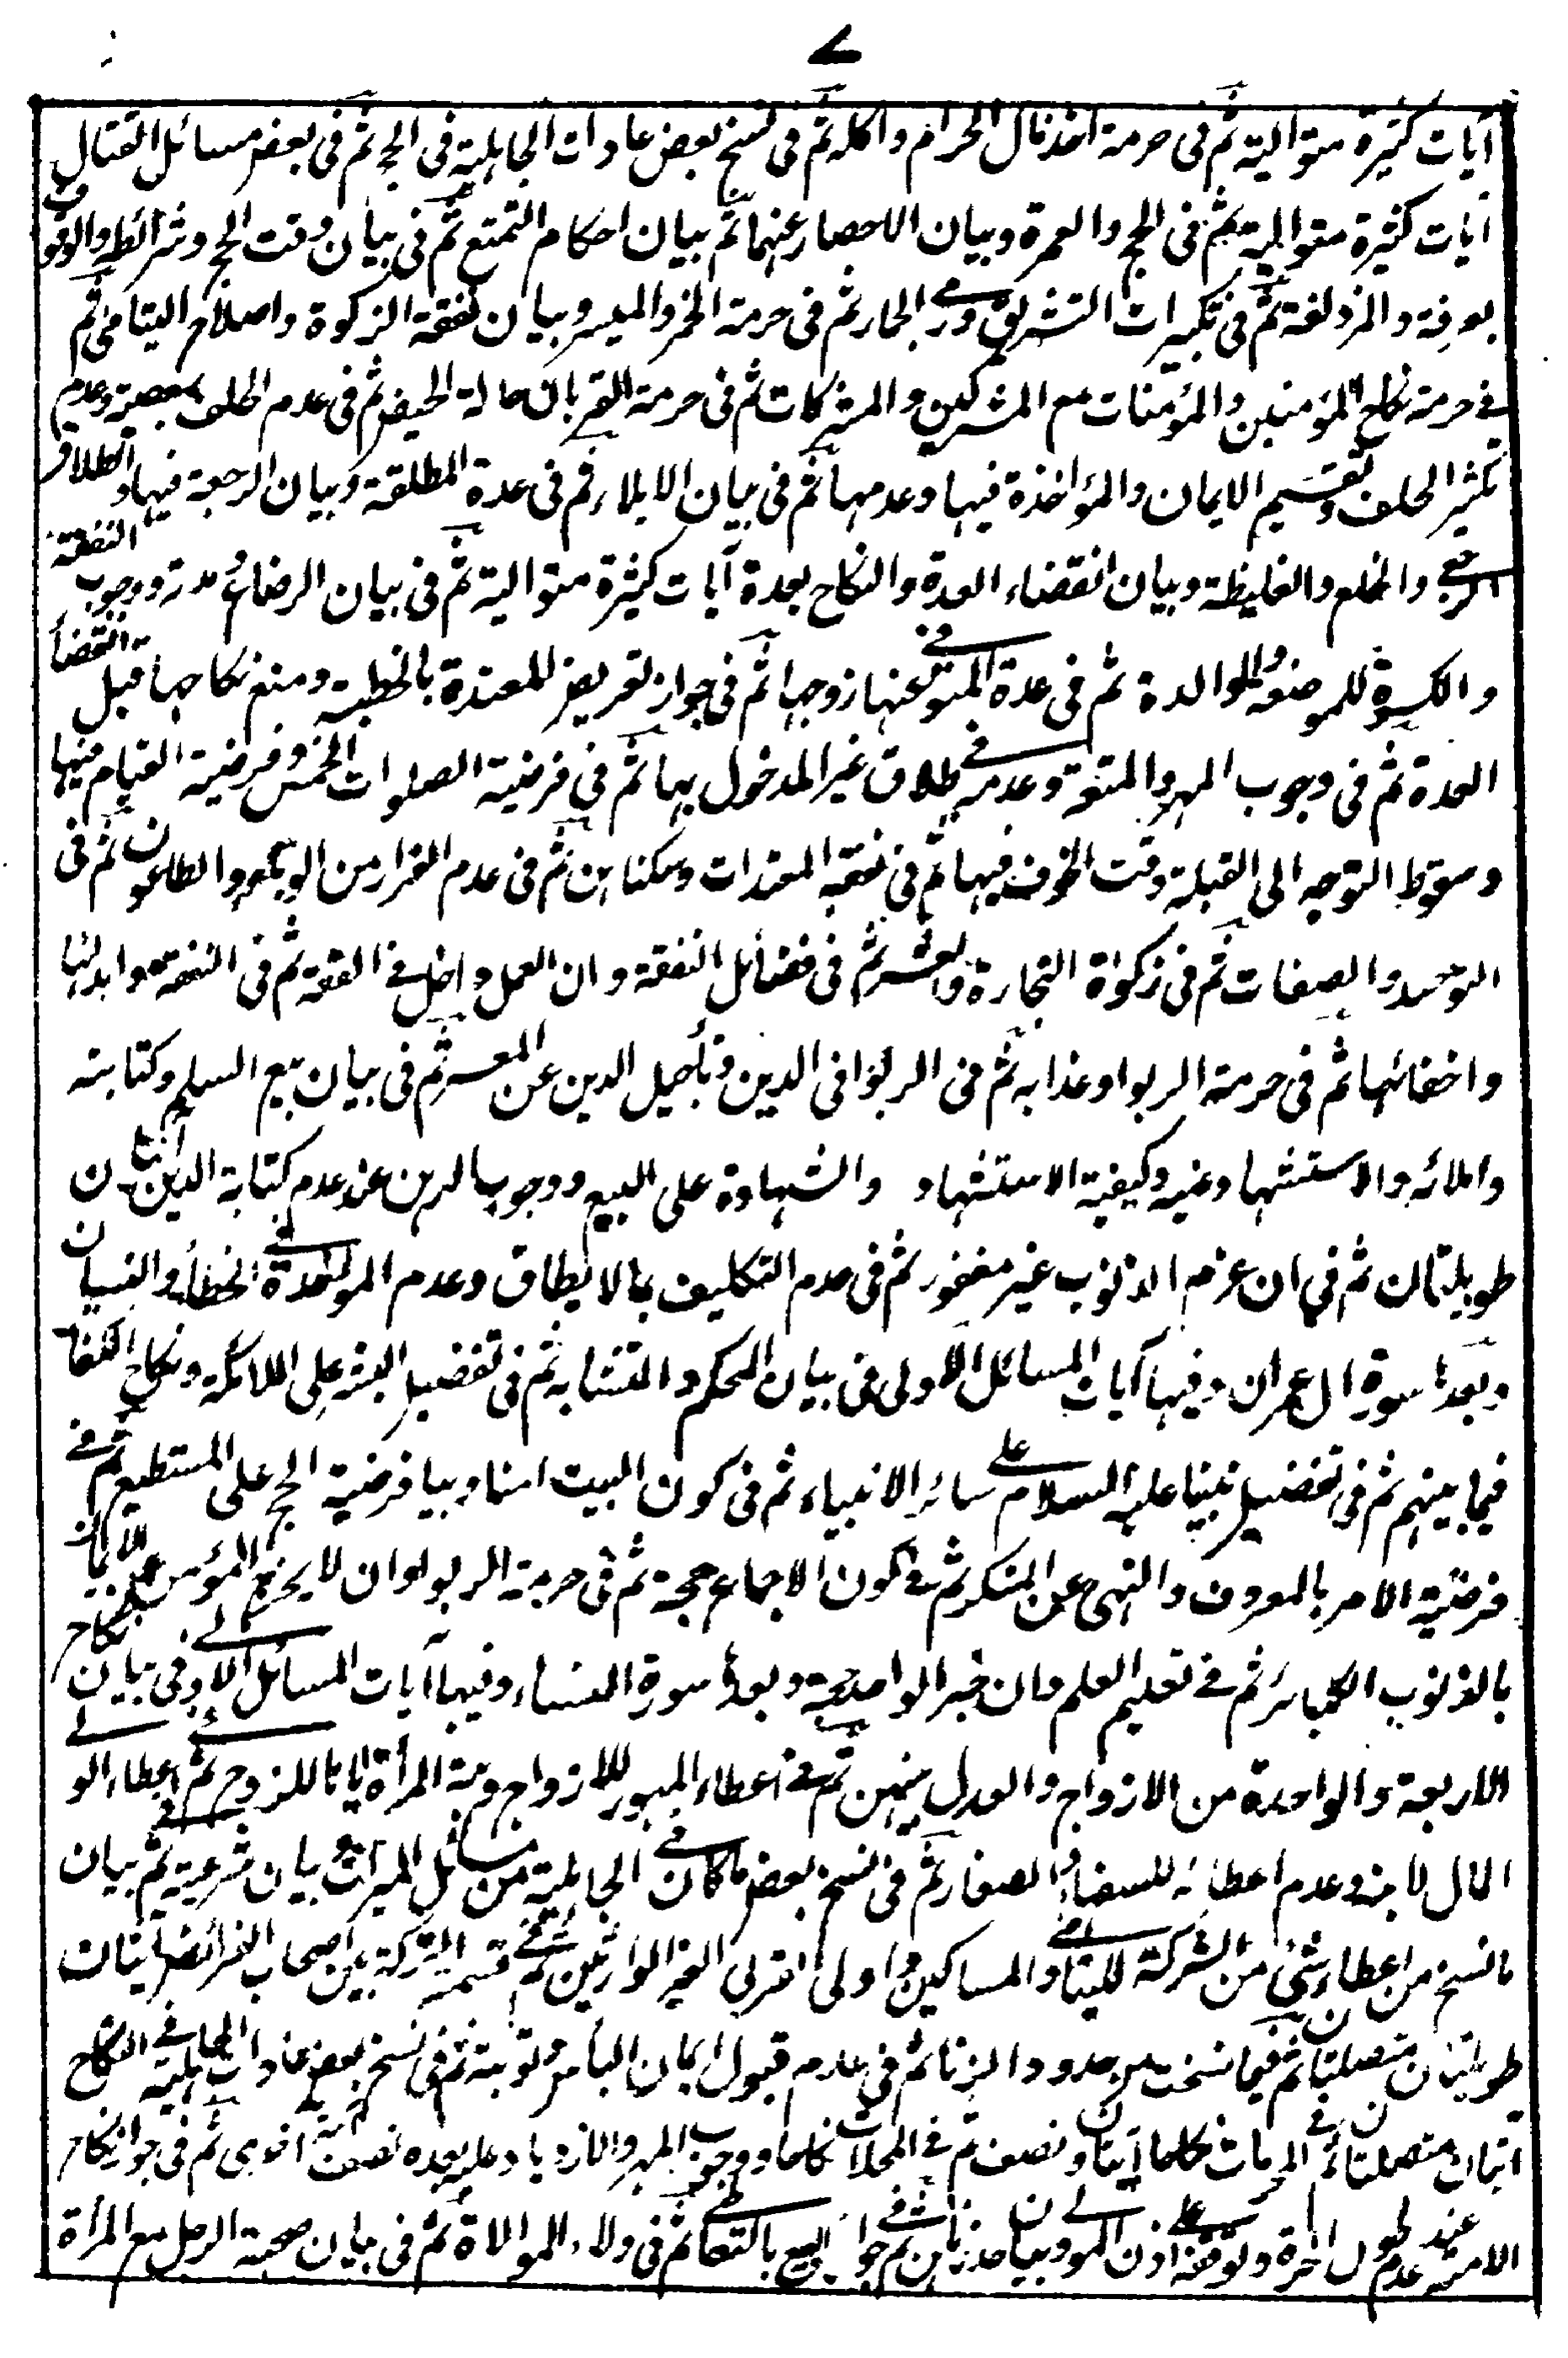 ٧
آيات كثيرة متوالية ثم فى حرمة اخذ مال الحرام واكله ثم فى نسخ بعض عادات الجاهلية فى الحج ثم فى بعض مسائل القتال
آيات كثيرة متوالية ثم فى الحج والعمرة وبيان الاحصار عنهما ثم بيان احكام التمتع ثم فى بيان وقت الحج وشرائطه والوقوف
بعرفة والمزدلفة ثم فى تكبيرات التشريق ورمى الجمار ثم فى حرمة الخمر والميسر وبيان نفقة الزكوة واصلاح اليتامى ثم
فى حرمة نكاح المؤمنين والمؤمنات مع المشركين والمشركات ثم فى حرمة القربان حالة الحيض ثم فى عدم الحلف بمعصية وعدم
تكثير الحلف وتقسيم الايمان والمؤاخذة فيها وعدمها ثم فى بيان الايلاء ثم فى عدة المطلقة وبيان الرجعة فيها والطلاق
الرجعى والخلع والغليظة وبيان انقضاء العدة والنكاح بعدة آيات كثيرة متوالية ثم فى بيان الرضاع ومدته ووجوب النفقة
والكسوة للمرضعة والوالدة ثم فى عدة المتوفى عنها زوجها ثم فى جواز تعريض للمعتدة بالخطبة ومنع نكاحها قبل انقضاء
العدة ثم فى وجوب المهر والمتعة وعدمه فى طلاق غير المدخول بها ثم فى فرضية الصلوات الخمس وفرضية القيام فيها
وسقوط التوجه الى القبلة وقت الخوف فيها ثم فى نفقة المعتدات وسكناهن ثم فى عدم الفرار من الوباء والطاعون ثم فى
التوحيد والصفات ثم فى زكواة التجارة والعشر ثم فى فضائل النفقة وان العمل داخل فى الفقه ثم فى النفقة وابدائها
واخفائها ثم فى حرمة الربوا وعذابه ثم فى الربوا فى الدين وتأجيل الدين عن المعسر ثم فى بيان بيع السلم وكتابته
واملائه والاستشهاد عنه وكيفية الاستشهاد والشهادة على البيع ووجوب الرهن عند عدم كتابة الدين آيتان
طويلتان ثم فى ان عزم الذنوب غير مغفور ثم فى عدم التكليف بما لا يطاق وعدم المؤاخذة فى الخطأ والنسيان
وبعدها سورة ال عمران وفيها آيات المسائل الاولى فى بيان المحكم والمتشابه ثم فى تفضيل البشر على الملائكة ونكاح الكفار
فيما بينهم ثم فى تفضيل نبينا عليه السلام على سائر الانبياء ثم فى كون البيت امنا وبيا فرضية الحج على المستطيع ثم فى
فرضية الامر بالمعروف والنهى عن المنكر ثم فى كون الاجماع حجة ثم فى حرمة الربوا وان لا يخرج المؤمن عن الايمان
بالذنوب الكبائر ثم فى تعليم العلم وان خبر الواحد حجة وبعدها سورة النساء وفيها آيات المسائل الاولى فى بيان نكاح
الاربعة والواحدة من الازواج والعدل بينهن ثم فى اعطاء المهور للازواج وهبة المرأة اياها للزوج ثم فى اعطاء الولى
المال لابنه وعدم اعطائه للسفهاء والصغار ثم فى نسخ بعض ما كان فى الجاهلية من مسائل الميراث وبيان شرعية ثم بيان
ما نسخ من اعطاء شئ من التركة لليتامى والمساكين واولى القربى الغير الوارثين ثم فى قسمة التركة بين اصحاب الفرائض آيتان
طويلتان متصلتان ثم فيما نسخت من حدود الزنا ثم فى عدم قبول ايمان البأس وتوبته ثم فى نسخ بعض عادات الجاهلية فى النكاح
آيتان متصلتان ثم فى المحرمات نكاحا آيتان ونصف ثم فى المحللات نكاحا ووجوب المهر والازدياد عليه بعده نصف آية اخرى ثم فى جواز نكاح
الامة عند عدم طول الحرة وتوقفه على اذن المولى وبيان حد زناهن ثم فى جواز البيع بالتعاطى ثم فى ولاء الموالاة ثم فى بيان صحبة الرجل مع المرأة